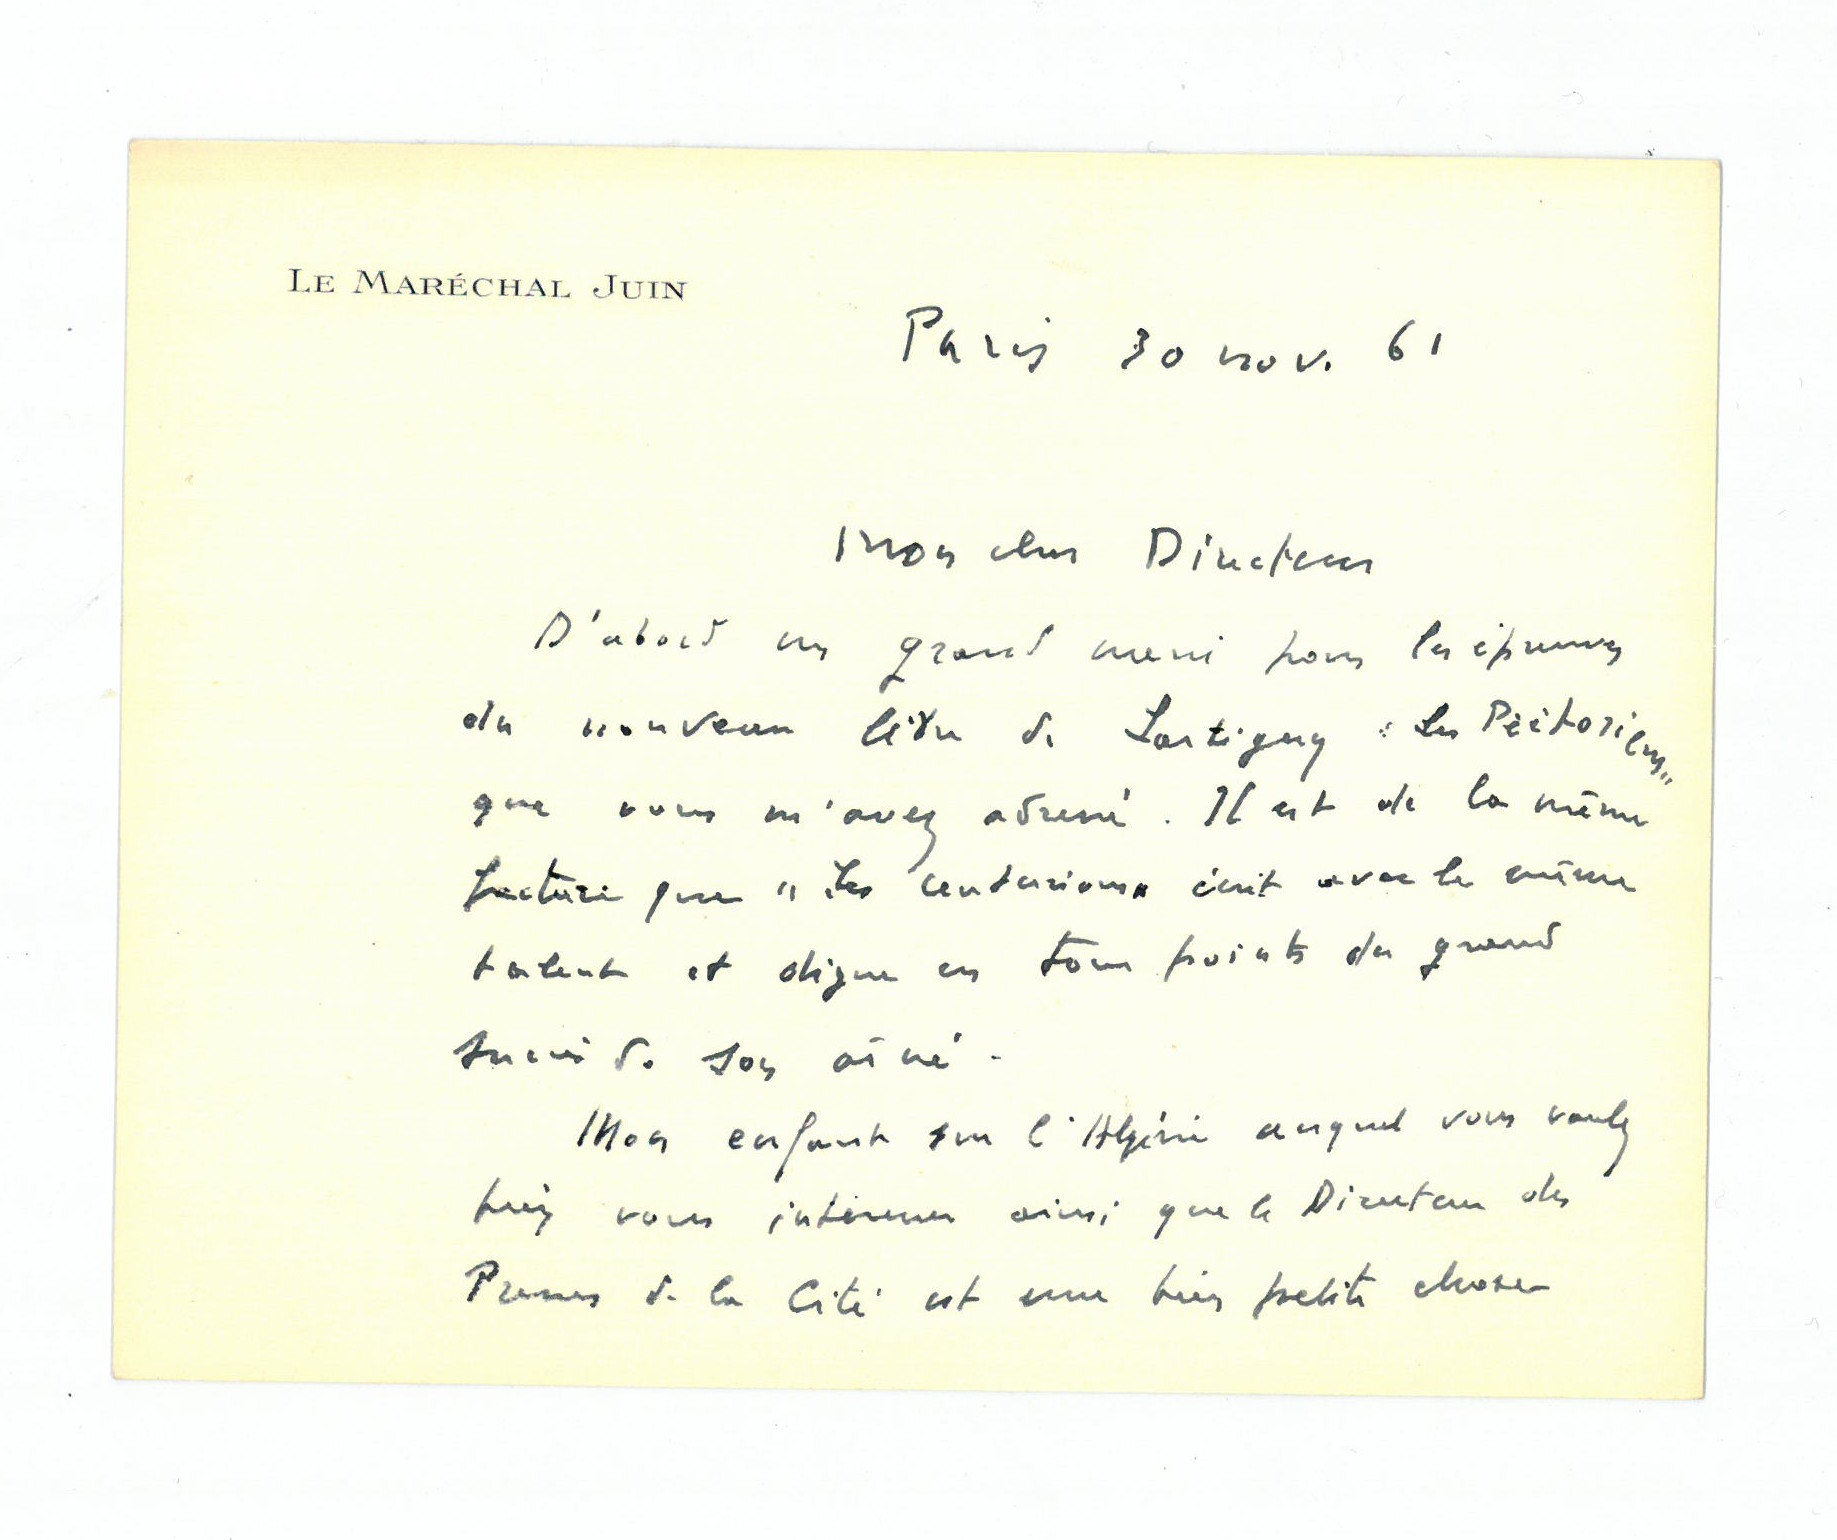 LE MARÉCHAL JUIN
Paris 30 nov. 61
Mon cher Directeur
D'abord un grand merci pour les épreuves
du nouveau livre de Lartéguy : Les Prétoriens"
que vous m'avez adressé. Il est de la même
facture que "Les centurions" écrit avec le même
talent et digne en tous points du grand
succès de son aîné.
Mon enfant sur l'Algérie auquel vous voulez
bien vous intéresser ainsi que le Directeur des
Presses de la Cité est une bien petite chose